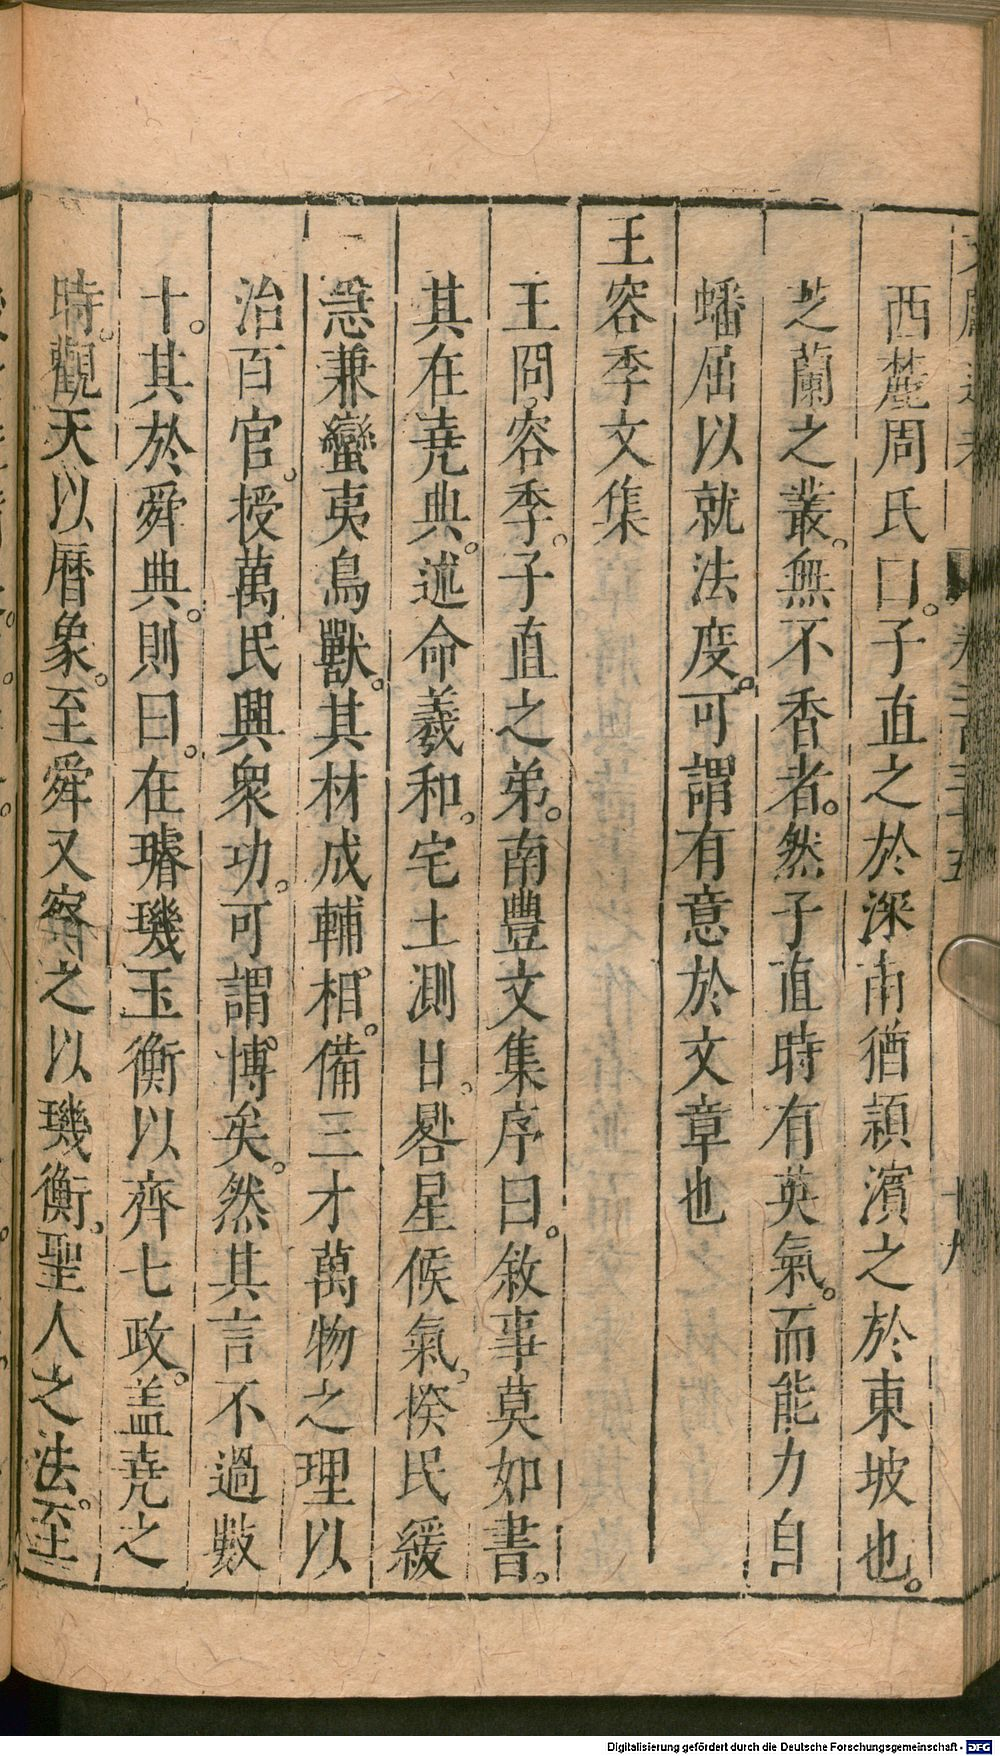 西麓周氏曰子直之於深甫猶潁濱之於東坡也
芝蘭之叢無不香者然子直時有英氣而能力自
蟠屈以就法度可謂有意於文章也
王容季文集
王冏容季子直之弟南豐文集序曰敘事莫如書
其在堯典述命羲和宅土測日晷星候氣揆民緩
急兼蠻夷鳥獸其材成輔相備三才萬物之理以
治百官授萬民興衆功可謂博矣然其言不過數
十其於舜典則曰在璿璣玉衡以齊七政盖堯之
時觀天以曆象至舜又察之以璣衡聖人之法至
Digitalisierung gefördert durch die Deutsche Forschungsgemeinschaft - DFG